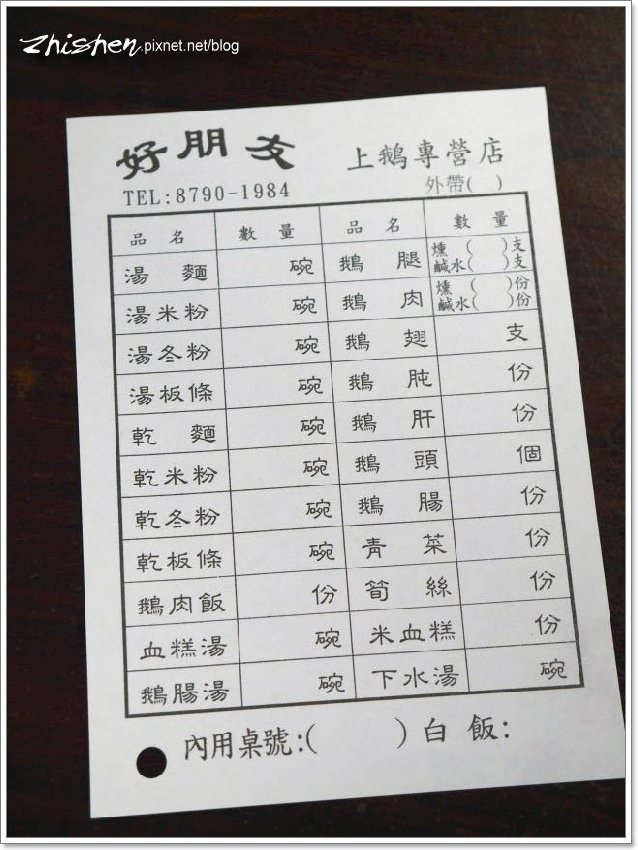 zhishen.pixnet.net/blog
好朋友 上鵝專營店
TEL:8790-1984 外帶( )
品名 數量 品名 數量
湯麵 碗 鵝腿 燻( )支 鹹水( )支
湯米粉 碗 鵝肉 燻( )份 鹹水( )份
湯冬粉 碗 鵝翅 支
湯板條 碗 鵝肫 份
乾麵 碗 鵝肝 份
乾米粉 碗 鵝頭 個
乾冬粉 碗 鵝腸 份
乾板條 碗 青菜 份
鵝肉飯 份 筍絲 份
血糕湯 碗 米血糕 份
鵝腸湯 碗 下水湯 碗
內用桌號:( ) 白飯: